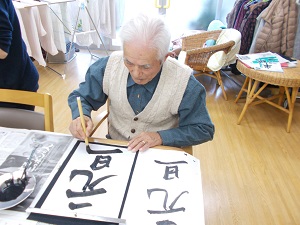 元旦
元旦